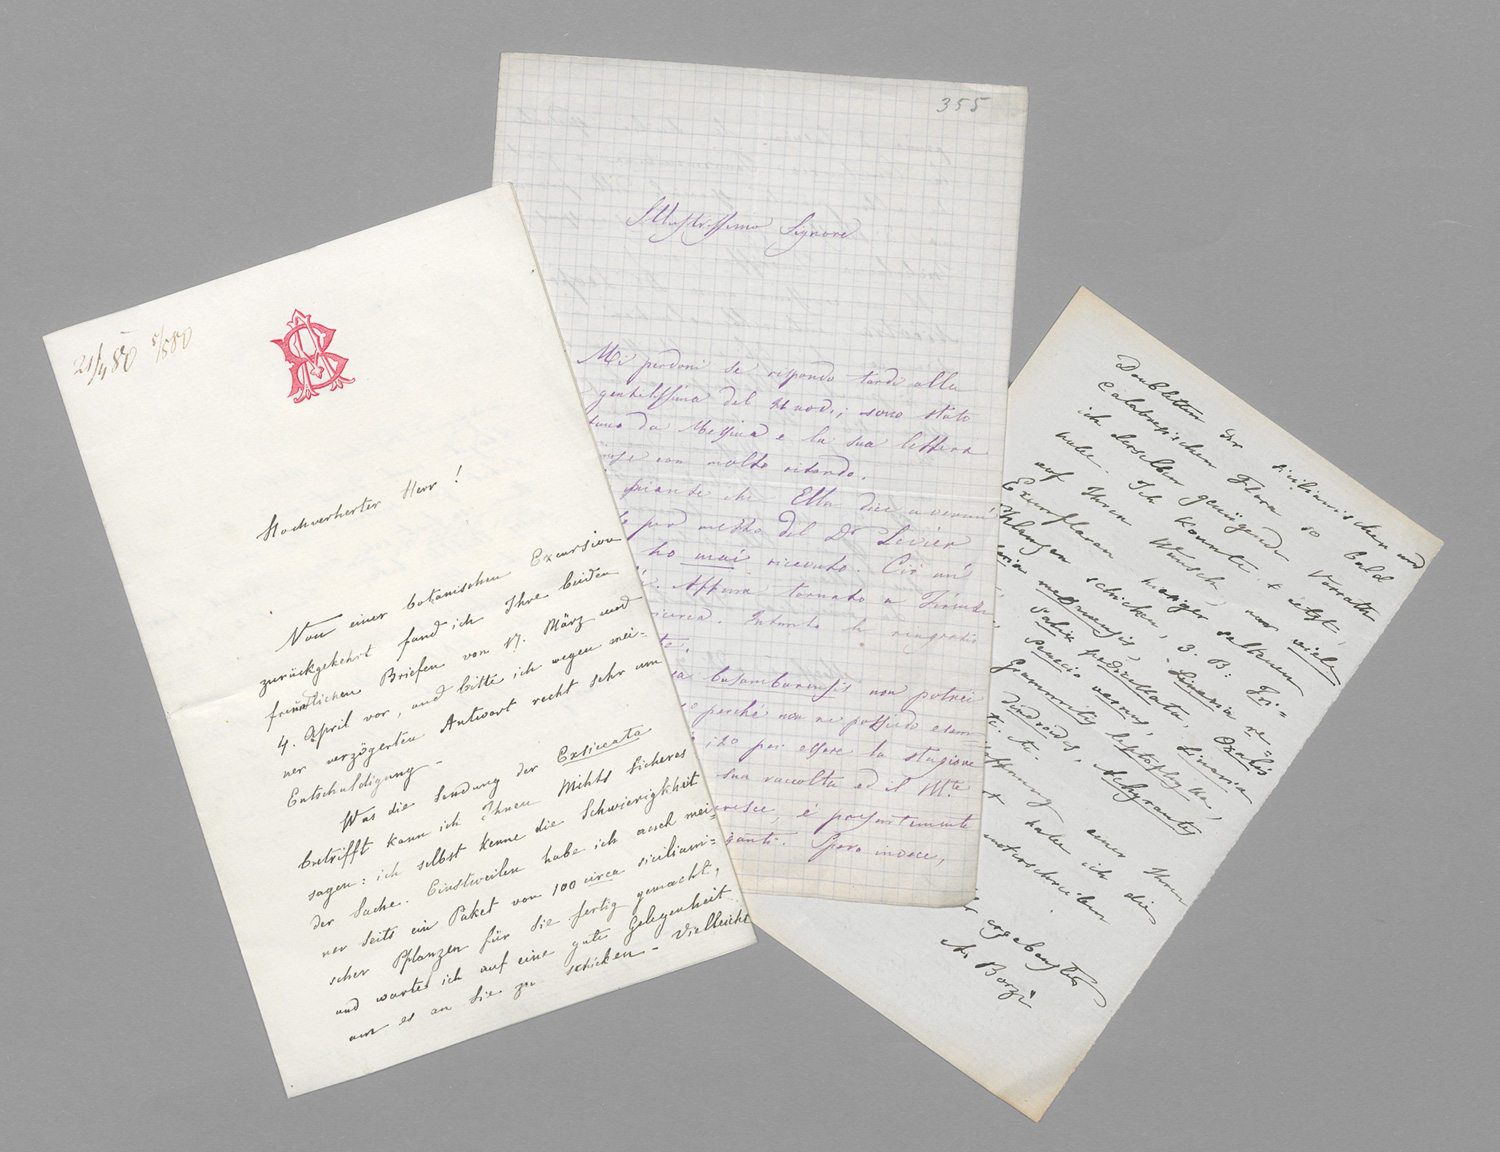 21/4 80 5/5 80
Hochverherter Herr!
Von einer botanischen Excursion
zurückgekehrt fand ich Ihre beiden
freundlichen Briefen vom 17. März und
4. April vor, und bitte ich wegen mei=
ner verzögerten Antwort recht sehr um
Entschuldigung.
Was die Sendung der Exsiccata
betrifft kann ich Ihnen Nihts sicheres
sagen: ich selbst kenne die Schwierigkheit
der Sache. Einstweilen habe ich auch mei=
ner seits ein Paket von 100 circa siciliani=
scher Pflanzen für Sie fertig gemacht,
und warte ich auf eine gute Gelegenheit
um es an Sie zu schicken – Vielleicht
355
Illustrissimo Signore
Mi perdoni se rispondo tardi alla
gentilissima del 11 nov.; sono stato
da Messina e la sua lettera
con molto ritardo.
piante che Ella dice avermi
per mezzo del Dr Levier
ho mai ricevuto. Ciò mi
Appena tornato a Firenze
ricerca. Intanto la ringrazio
busambarensis non potrei
perché non ne possiedo esem
per essere la stagione
sua raccolta ed il Mte
cresce, è presentemente
Spero invece,
Doubletten der sicilianischen und
Calabresischen Flora so bald
ich derselben genügende Vorräthe
habe. Ich konnte jetzt,
auf Ihren Wunsch, nur viele
Exemplaren weniger seltenen
Pflanzen schicken, z. B. Tri=
messanensis, Linaria
Salix pedicellata, Oxalis
cernua, Linaria
Grammitis leptophylla,
Achyranthes
Hoffnung einer Ihren
habe ich die
unterschreiben
ergebenster
A. Borzì